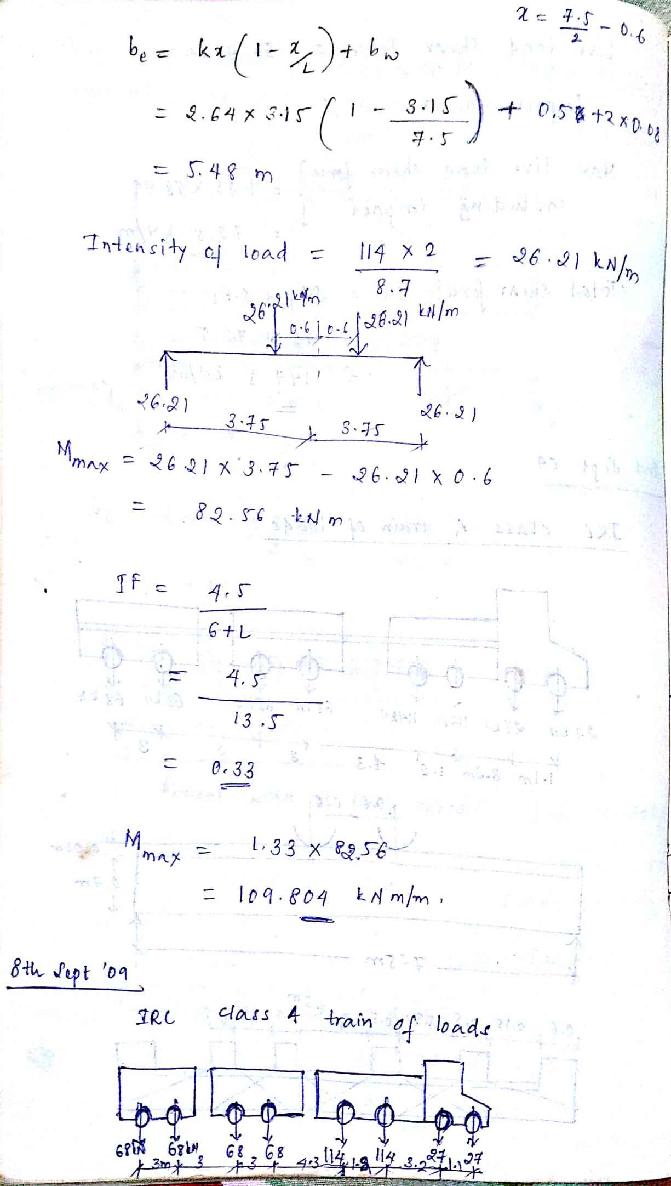 x = 7.5/2 - 0.6
be = kx (1 - x/L) + bw
= 2.64 x 3.15 (1 - 3.15/7.5) + 0.5 + 2 x 0.08
= 5.48 m
Intensity of load = 114 x 2 / 8.7 = 26.21 kN/m
26.21 kN/m 0.6 0.6 26.21 kN/m
26.21 26.21
3.75 3.75
Mmax = 26 21 x 3.75 - 26.21 x 0.6
= 82.56 kN m
IF = 4.5 / 6+L
= 4.5 / 13.5
= 0.33
Mmax = 1.33 x 82.56
= 109.804 kN m/m.
8th Sept '09
IRC class A train of loads
68kN 68kN 68 68 114 114 27 27
3m 3 3 4.3 1.2 3.2 1.1